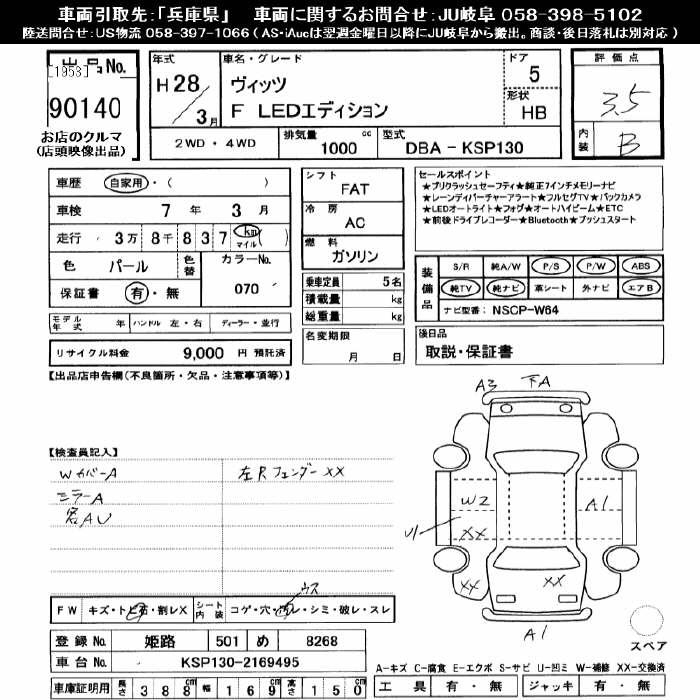 車両引取先:「兵庫県」 車両に関するお問合せ:JU岐阜 058-398-5102
陸送問合せ:US物流 058-397-1066 ( AS・iAucは翌週金曜日以降にJU岐阜から搬出。商談・後日落札は別対応 )
出品No.
[1953]
90140
お店のクルマ
(店頭映像出品)
年式
H28/3月
車名・グレード
ヴィッツ
F LEDエディション
ドア
5
形状
HB
2WD・4WD
排気量 1000 cc
型式 DBA - KSP130
評価点
3.5
内装 B
車歴 自家用・( )
車検 7年 3月
走行 3万8千837 km マイル ( )
色 パール 色替
カラーNo. 070
保証書 有・無
モデル年式 年 ハンドル 左・右 ディーラー・並行
リサイクル料金 9,000 円 預託済
シフト FAT
冷房 AC
燃料 ガソリン
乗車定員 5名
積載量 kg
総重量 kg
名変期限 月 日
セールスポイント
★プリクラッシュセーフティ★純正7インチメモリーナビ
★レーンディパーチャーアラート★フルセグTV★バックカメラ
★LEDオートライト★フォグ★オートハイビーム★ETC
★前後ドライブレコーダー★Bluetooth★プッシュスタート
装備品
S/R 純A/W P/S P/W ABS
純TV 純ナビ 革シート 外ナビ エアB
ナビ型番: NSCP-W64
後日品
取説・保証書
【出品店申告欄(不良箇所・欠品・注意事項等)】
【検査員記入】
Wカバー A
左Rフェンダー XX
ミラーA
各AU
A3 下A
W2 A1
U1 XX
XX XX
A1
スペア
ウス
FW キズ・トビ石・割レX
シート内装 コゲ・穴・汚レ・シミ・破レ・スレ
登録No. 姫路 501 め 8268
車台No. KSP130-2169495
車庫証明用 長さ 388 幅 169 高さ 150
A-キズ C-腐食 E-エクボ S-サビ U-凹ミ W-補修 XX-交換済
工具 有・無 ジャッキ 有・無